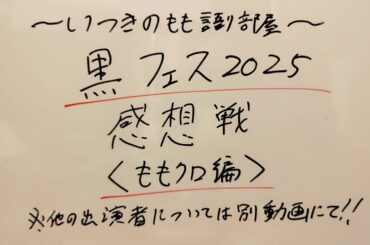 ～いつきのもも語り部屋～
黒フェス2025
感想戦
＜ももクロ編＞
※他の出演者については別動画にて!!